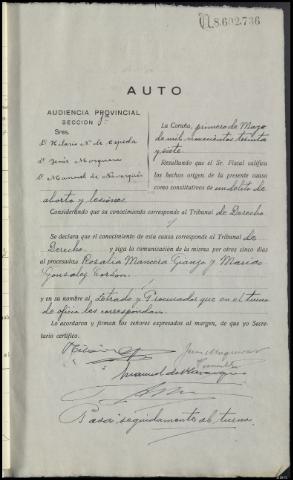 8.602.736
AUTO
AUDIENCIA PROVINCIAL
SECCIÓN
Sres.
D. Hilario N. de Cepeda
D. Jesús
D. Manuel de
La Coruña, primero de Mayo
de mil novecientos treinta
y siete.
Resultando que el Sr. Fiscal califica
los hechos origen de la presente causa
como constitutivos de un delito de
aborto y lesiones
Considerando que su conocimiento corresponde al Tribunal de Derecho
Se declara que el conocimiento de esta causa corresponde al Tribunal de
Derecho y siga la comunicación de la misma por otros cinco días
al procesado Rosalia Mancera y
Gonzalez
y en su nombre al Letrado y Procurador que en el turno
de oficio les correspondan
Lo acordaron y firman los señores expresados al margen, de que yo Secre-
tario certifico.
Pasa seguidamente al turno.